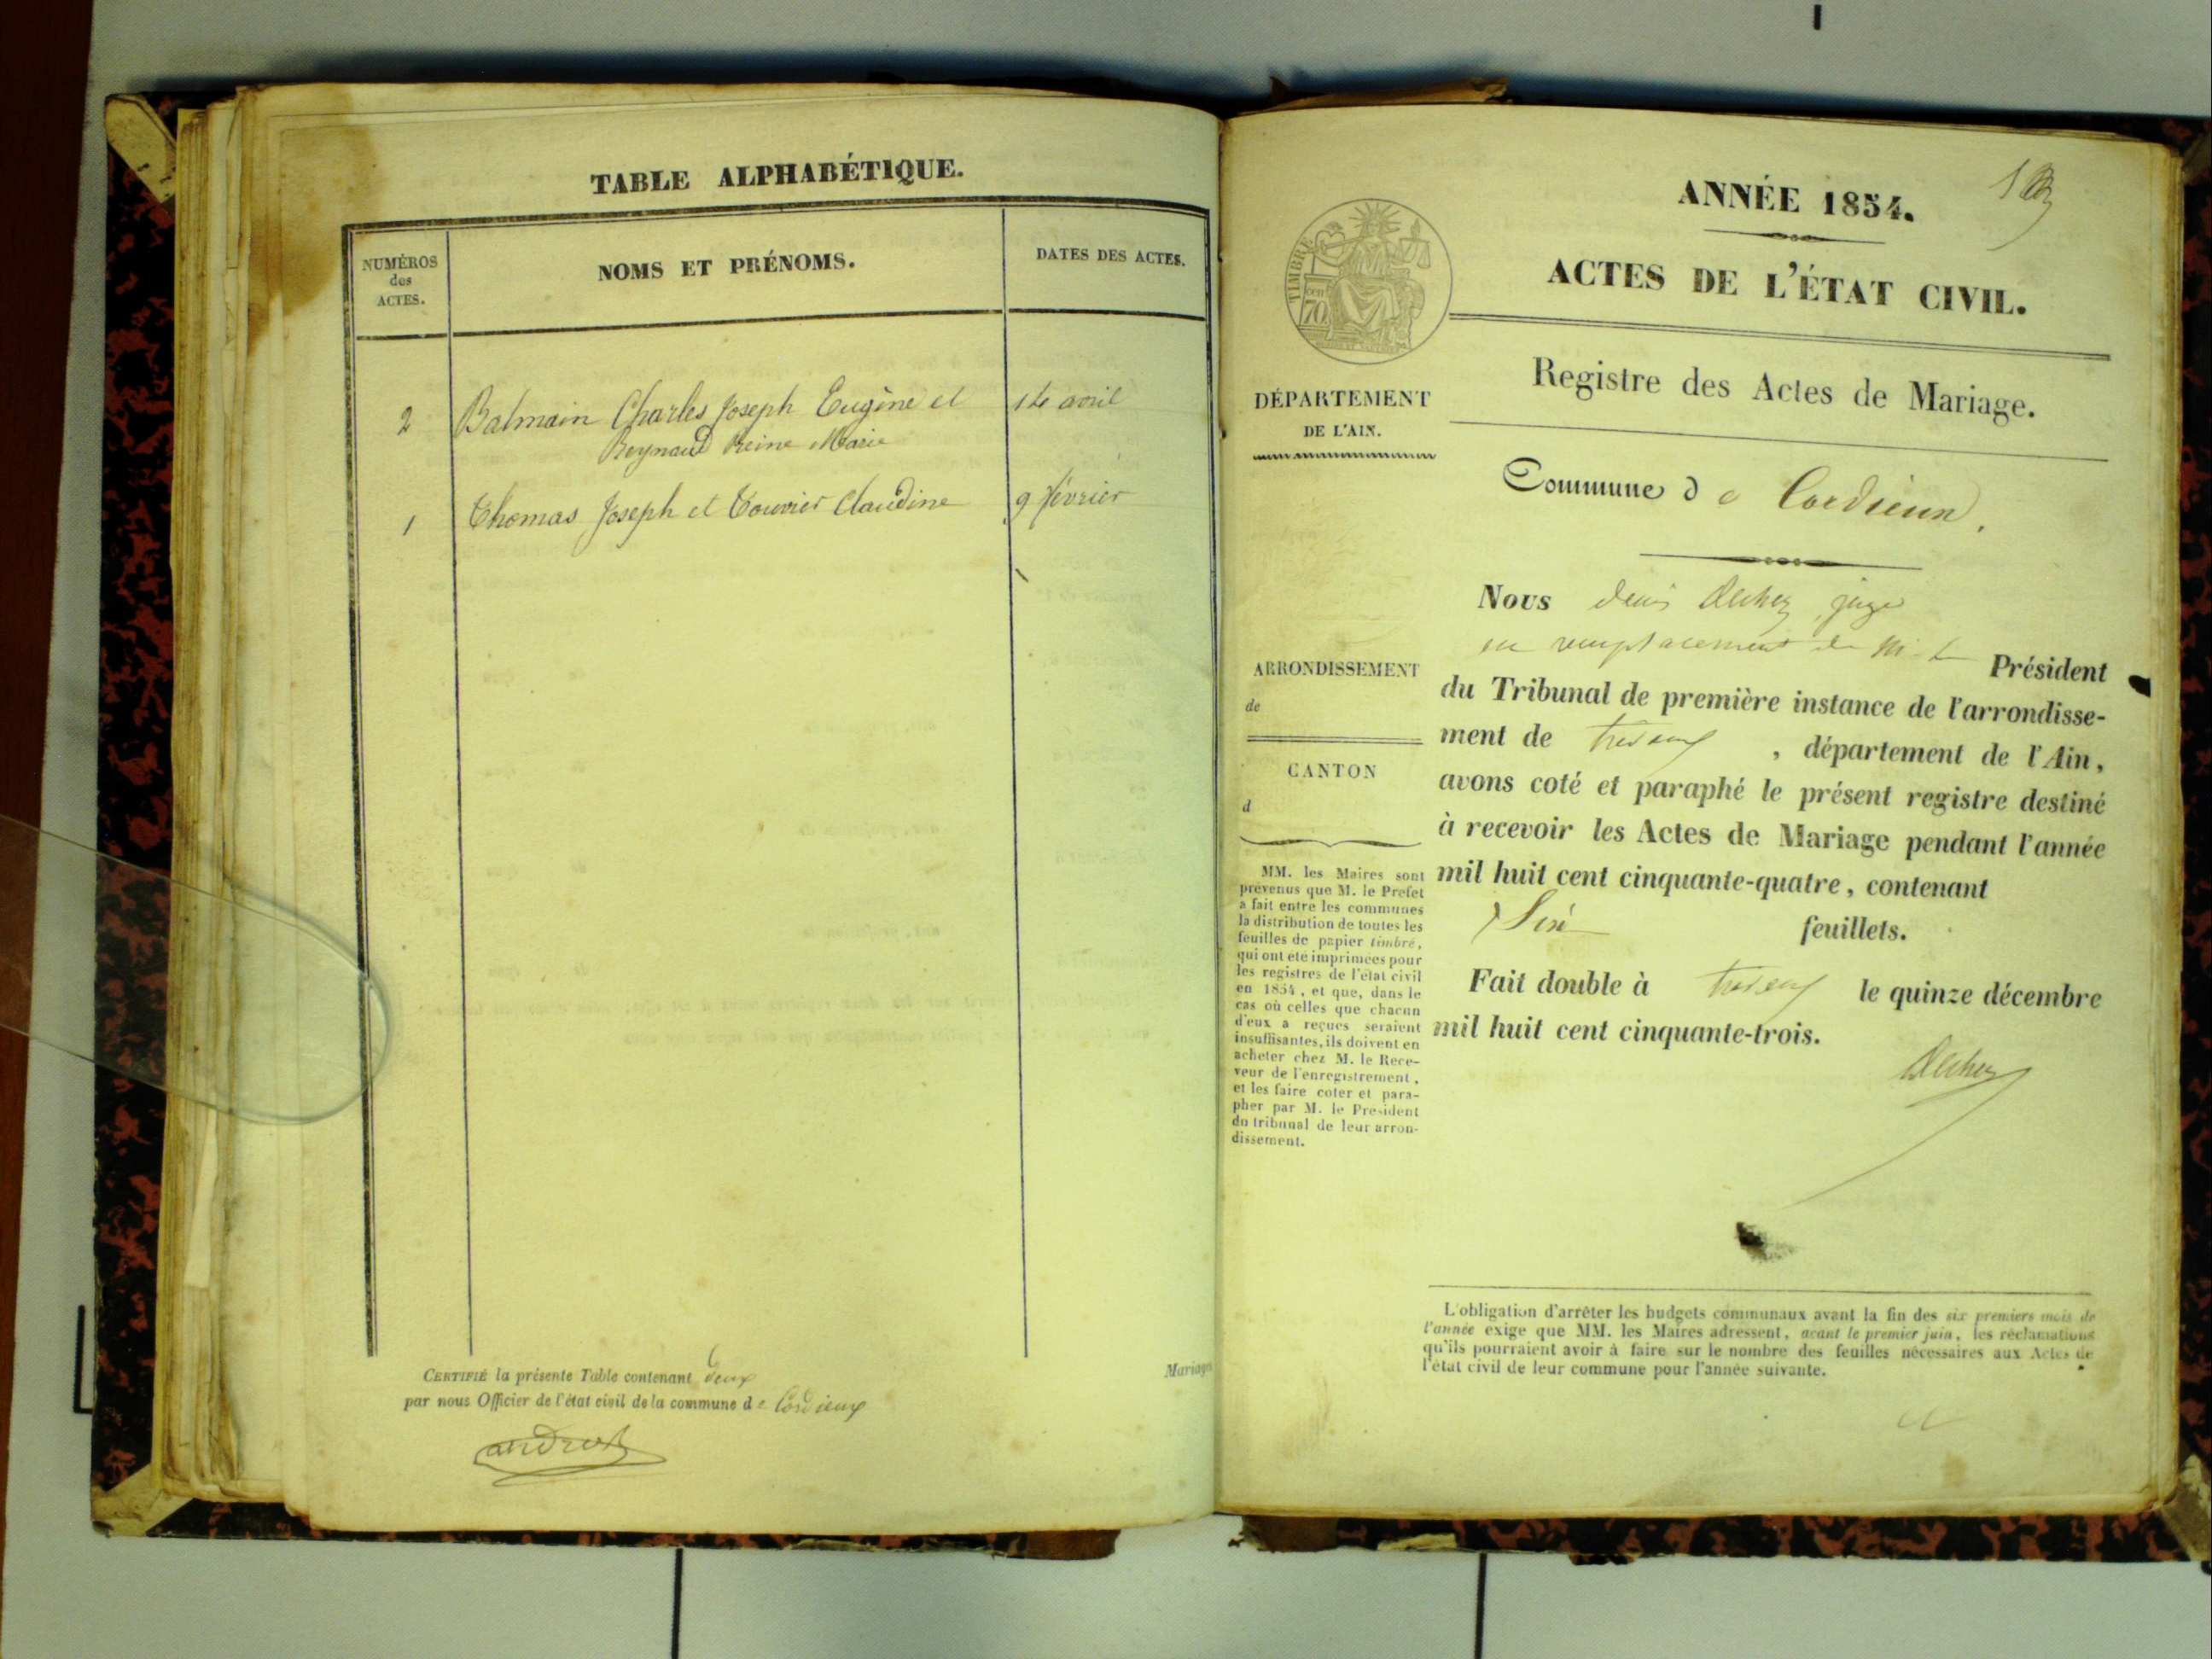 TABLE ALPHABÉTIQUE.
NUMÉROS
des
ACTES.
NOMS ET PRÉNOMS.
DATES DES ACTES.
2 Balmain Charles Joseph Eugène et 14 avril
Reynaud Reine Marie
1 Thomas Joseph et Bouvier Claudine 9 février
CERTIFIÉ la présente Table contenant deux
par nous Officier de l'état civil de la commune de Cordieux
andre
Mariages
ANNÉE 1854.
ACTES DE L'ÉTAT CIVIL.
TIMBRE
70
Registre des Actes de Mariage.
DÉPARTEMENT
DE L'AIN.
Commune de Cordieux.
ARRONDISSEMENT
de
CANTON
d
MM. les Maires sont
prévenus que M. le Prefet
a fait entre les communes
la distribution de toutes les
feuilles de papier timbré,
qui ont été imprimées pour
les registres de l'état civil
en 1854, et que, dans le
cas où celles que chacun
d'eux a reçues seraient
insuffisantes, ils doivent en
acheter chez M. le Rece-
veur de l'enregistrement,
et les faire coter et para-
pher par M. le Président
du tribunal de leur arron-
dissement.
Nous denis juge
en remplacement de M. le Président
du Tribunal de première instance de l'arrondisse-
ment de trevoux, département de l'Ain,
avons coté et paraphé le présent registre destiné
à recevoir les Actes de Mariage pendant l'année
mil huit cent cinquante-quatre, contenant
feuillets.
Fait double à trevoux le quinze décembre
mil huit cent cinquante-trois.
L'obligation d'arrêter les budgets communaux avant la fin des six premiers mois de
l'année exige que MM. les Maires adressent, avant le premier juin, les réclamations
qu'ils pourraient avoir à faire sur le nombre des feuilles nécessaires aux Actes de
l'état civil de leur commune pour l'année suivante.